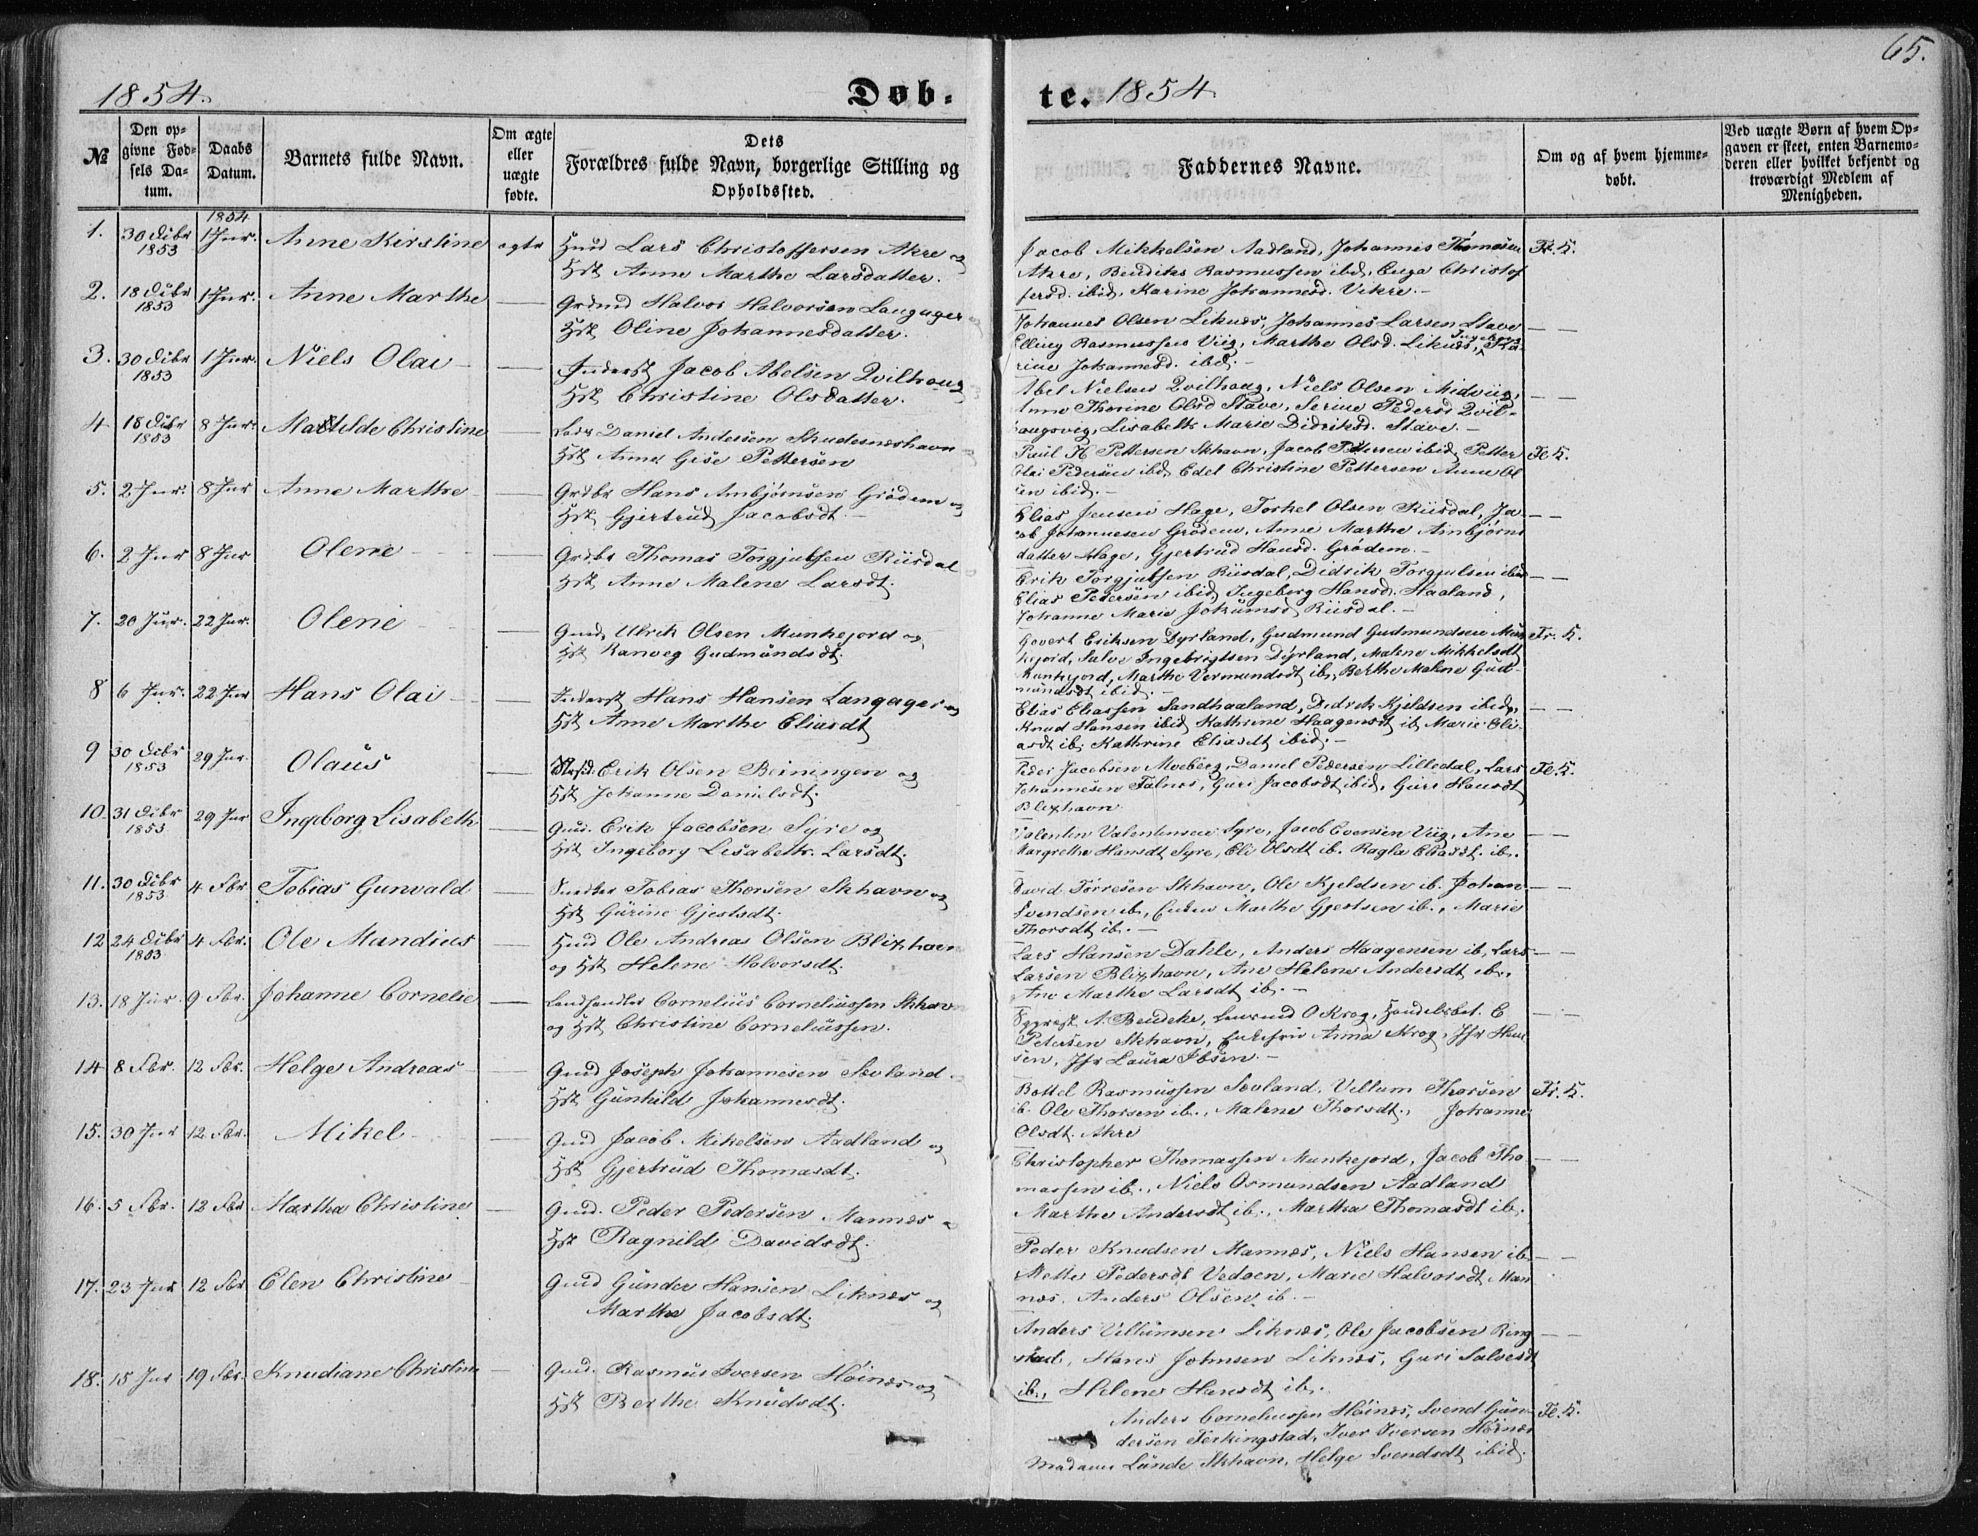 65.
1854. Døb- te. 1854.
№
Den opgivne Fødsels Datum.
Daabs Datum.
Barnets fulde Navn.
Om ægte eller uægte fødte.
Dets Forældres fulde Navn, borgerlige Stilling og Opholdssted.
Faddernes Navne.
Om og af hvem hjemmedøbt.
Ved uægte Børn af hvem Opgaven er skeet, enten Barnemoderen eller hvilket bekjendt og troværdigt Medlem af Menigheden.
1854
1. 30 Dcbr 1853 1 Jnr. Anne Kirstine ægte
Lars Christoffersen Akre og
Hst Anne Marthe Larsdatter.
Jacob Mikkelsen Aadland, Johannes Thomasen
Akre, Rasmussen ibid, Christof
fersd. ibid, Karine Johannesd. Vikre.
2. 18 Dcbr 1853 1 Jnr. Anne Marthe —
Halvor Halvorsen Langager
Hst Oline Johannesdatter.
Johannes Olsen Liknes, Johannes Larsen Stave
Elling Rasmussen Viig, Marthe Olsd. Liknes,
rine Johannesd. ibid.
3. 30 Dcbr 1853 1 Jnr. Niels Olai —
Jacob Abelsen Qvilhoug
Hst Christine Olsdatter.
Abel Nielsen Qvilhoug, Niels Olsen Midviig,
Anne Thorine Olsd Stave, Serine Pedersd Qvil-
ougsvig, Lisabeth Marie Didriksd. Stave.
4 18 Dcbr 1853 8 Jnr. Mathilde Christine —
Daniel Andersen Skudesneshavn
Hst Anne Gise Pettersen
Paul Pettersen Skhavn, Jacob Pettersen ibid, Petter
Olai Pedersen ibid, Edel Christine Pettersen Anne Ol
sen ibid.
5. 2 Jnr. 8 Jnr Anne Marthe —
Grdbr Hans Ambjørnsen Grødem og
Hst Gjertrud Jacobsdt.
Elias Jensen Hage, Torkel Olsen Riisdal, Ja
cob Johannesen Grødem, Anne Marthe Ambjørns
datter Hage, Gjertrud Hansd. Grødem.
6. 2 Jnr 8 Jnr Olene —
Grdbr Thomas Torgjulsen Riisdal
Hst Anne Malene Larsdt.
Erik Torgjulsen Riisdal, Didrik Torgjulsen ibid
Elias Pedersen ibid, Ingeborg Hansd. Haaland,
Johanne Marie Riisdal.
7. 20 Jnr. 22 Jnr. Olene —
Gmd. Ulrik Olsen Munkejord og
Hst Ranveg Gudmundsdt.
Govert Eriksen Dyrland, Gudmund Gudmundsen Mun
kejord, Salve Ingebrigtsen Dyrland, Malene Mikkelsdt
Munkejord, Marthe Vermundsdt ib., Berthe Malene Gud-
mundsdt ibid.
8 6 Jnr. 22 Jnr Hans Olai —
Hans Hansen Langager og
Hst Anne Marthe Eliasdt
Elias Eliassen Sandhaaland, Didrik Kjeldsen ibid,
Knud Hansen ibid Kathrine Haagensdt ib, Marie Eli-
asdt ib. Kathrine Eliasdt ibid.
9 30 Dcbr 1853 29 Jnr. Olaus —
Erik Olsen Beiningen og
Hst Johanne Danielsdt.
Peder Jacobsen Moeberg, Daniel Pedersen Lilledal, Lars
Johannesen Falnes, Guri Jacobsdt ibid, Guri Hansdt
Blixhavn.
10. 31 Dcbr 1853 29 Jnr Ingeborg Lisabeth —
Gmd. Erik Jacobsen Syre og
Hst Ingeborg Lisabeth Larsdt.
Valentin Valentinsen Syre, Jacob Evensen Viig, Ane
Margrethe Hansdt Syre, Eli Olsdt ib. Ragla Eliasdt. ib.
11. 30 Dcbr 1853 4 Fbr Tobias Gunvald —
Tobias Thorsen Skhavn og
Hst Gurine Gjestsdt.
David Torresen Skhavn, Ole Kjeldsen ib. Johan
Svendsen ib, Marthe Gjestsen ib., Marie
Thorsdt ib.
12 24 Dcbr 1853 4 Fbr. Ole Mandius —
Ole Andreas Olsen Blixhavn
og Hst Helene Halvorsdt.
Lars Hansen Dahle, Anders Haagensen ib, Lars
Larsen Blixhavn, Ane Helene Andersdt ib.
Ane Marthe Larsdt ib.
13. 18 Jnr. 9 Fbr. Johanne Cornelie —
Landhandler Cornelius Corneliussen Skhavn
og Hst Christine Corneliussen.
N. Bendeke, O Krog, Handelsbet. E
Petersen Skhavn, Anna Krog, Jfr
sen, Jfr Laura Ibsen.
14 8 Fbr. 12 Fbr. Helge Andreas —
Gmd Joseph Johannesen Sevland
Hst Gunhild Johannesdt.
Bottel Rasmussen Sevland, Villum Thorsen
ib. Ole Thorsen ib., Malene Thorsdt., Johanne
Olsdt. Akre
15. 30 Jnr 12 Fbr. Mikel —
Gmd Jacob Mikelsen Aadland og
Hst Gjertrud Thomasdt.
Christopher Thomassen Munkejord, Jacob Tho
massen ib., Niels Osmundsen Aadland
Marthe Andersdt ib., Martha Thomasdt ib.
16. 5 Fbr. 12 Fbr Martha Christine —
Gmd. Peder Pedersen Mannes
Hst Ragnild Davidsdt.
Peder Knudsen Mannes, Niels Hansen ib.
Mette Pedersdt Vedøen, Marie Halvorsdt Man
nes. Anders Olsen ib.
17. 23 Jnr 12 Fbr Elen Christine —
Gmd Gunder Hansen Liknes og
Marthe Jacobsdt.
Anders Villumsen Liknes, Ole Jacobsen Ring
stad, Hans Johnsen Liknes, Guri Salvesdt
ib., Helene Hansdt ib.
18. 15 Jnr 19 Fbr. Knudiane Christine —
Gmd. Rasmus Iversen Høines og
Hst Berthe Knudsdt.
Anders Corneliussen Høines, Svend Gun-
dersen Ferkingstad, Iver Iversen Høines
Madame Lunde Skhavn, Helge Svendsdt ibid.